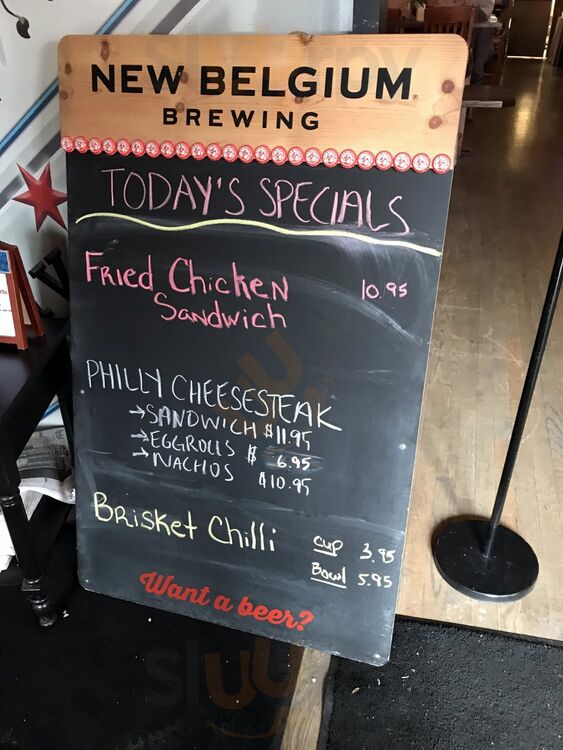 NEW BELGIUM
BREWING
TODAY'S SPECIALS
FRIED CHICKEN 10.95
SANDWICH
PHILLY CHEESESTEAK
→SANDWICH $11.95
→EGGROLLS $ 6.95
→NACHOS $10.95
BRISKET CHILLI CUP 3.95
Bowl 5.95
Want a beer?